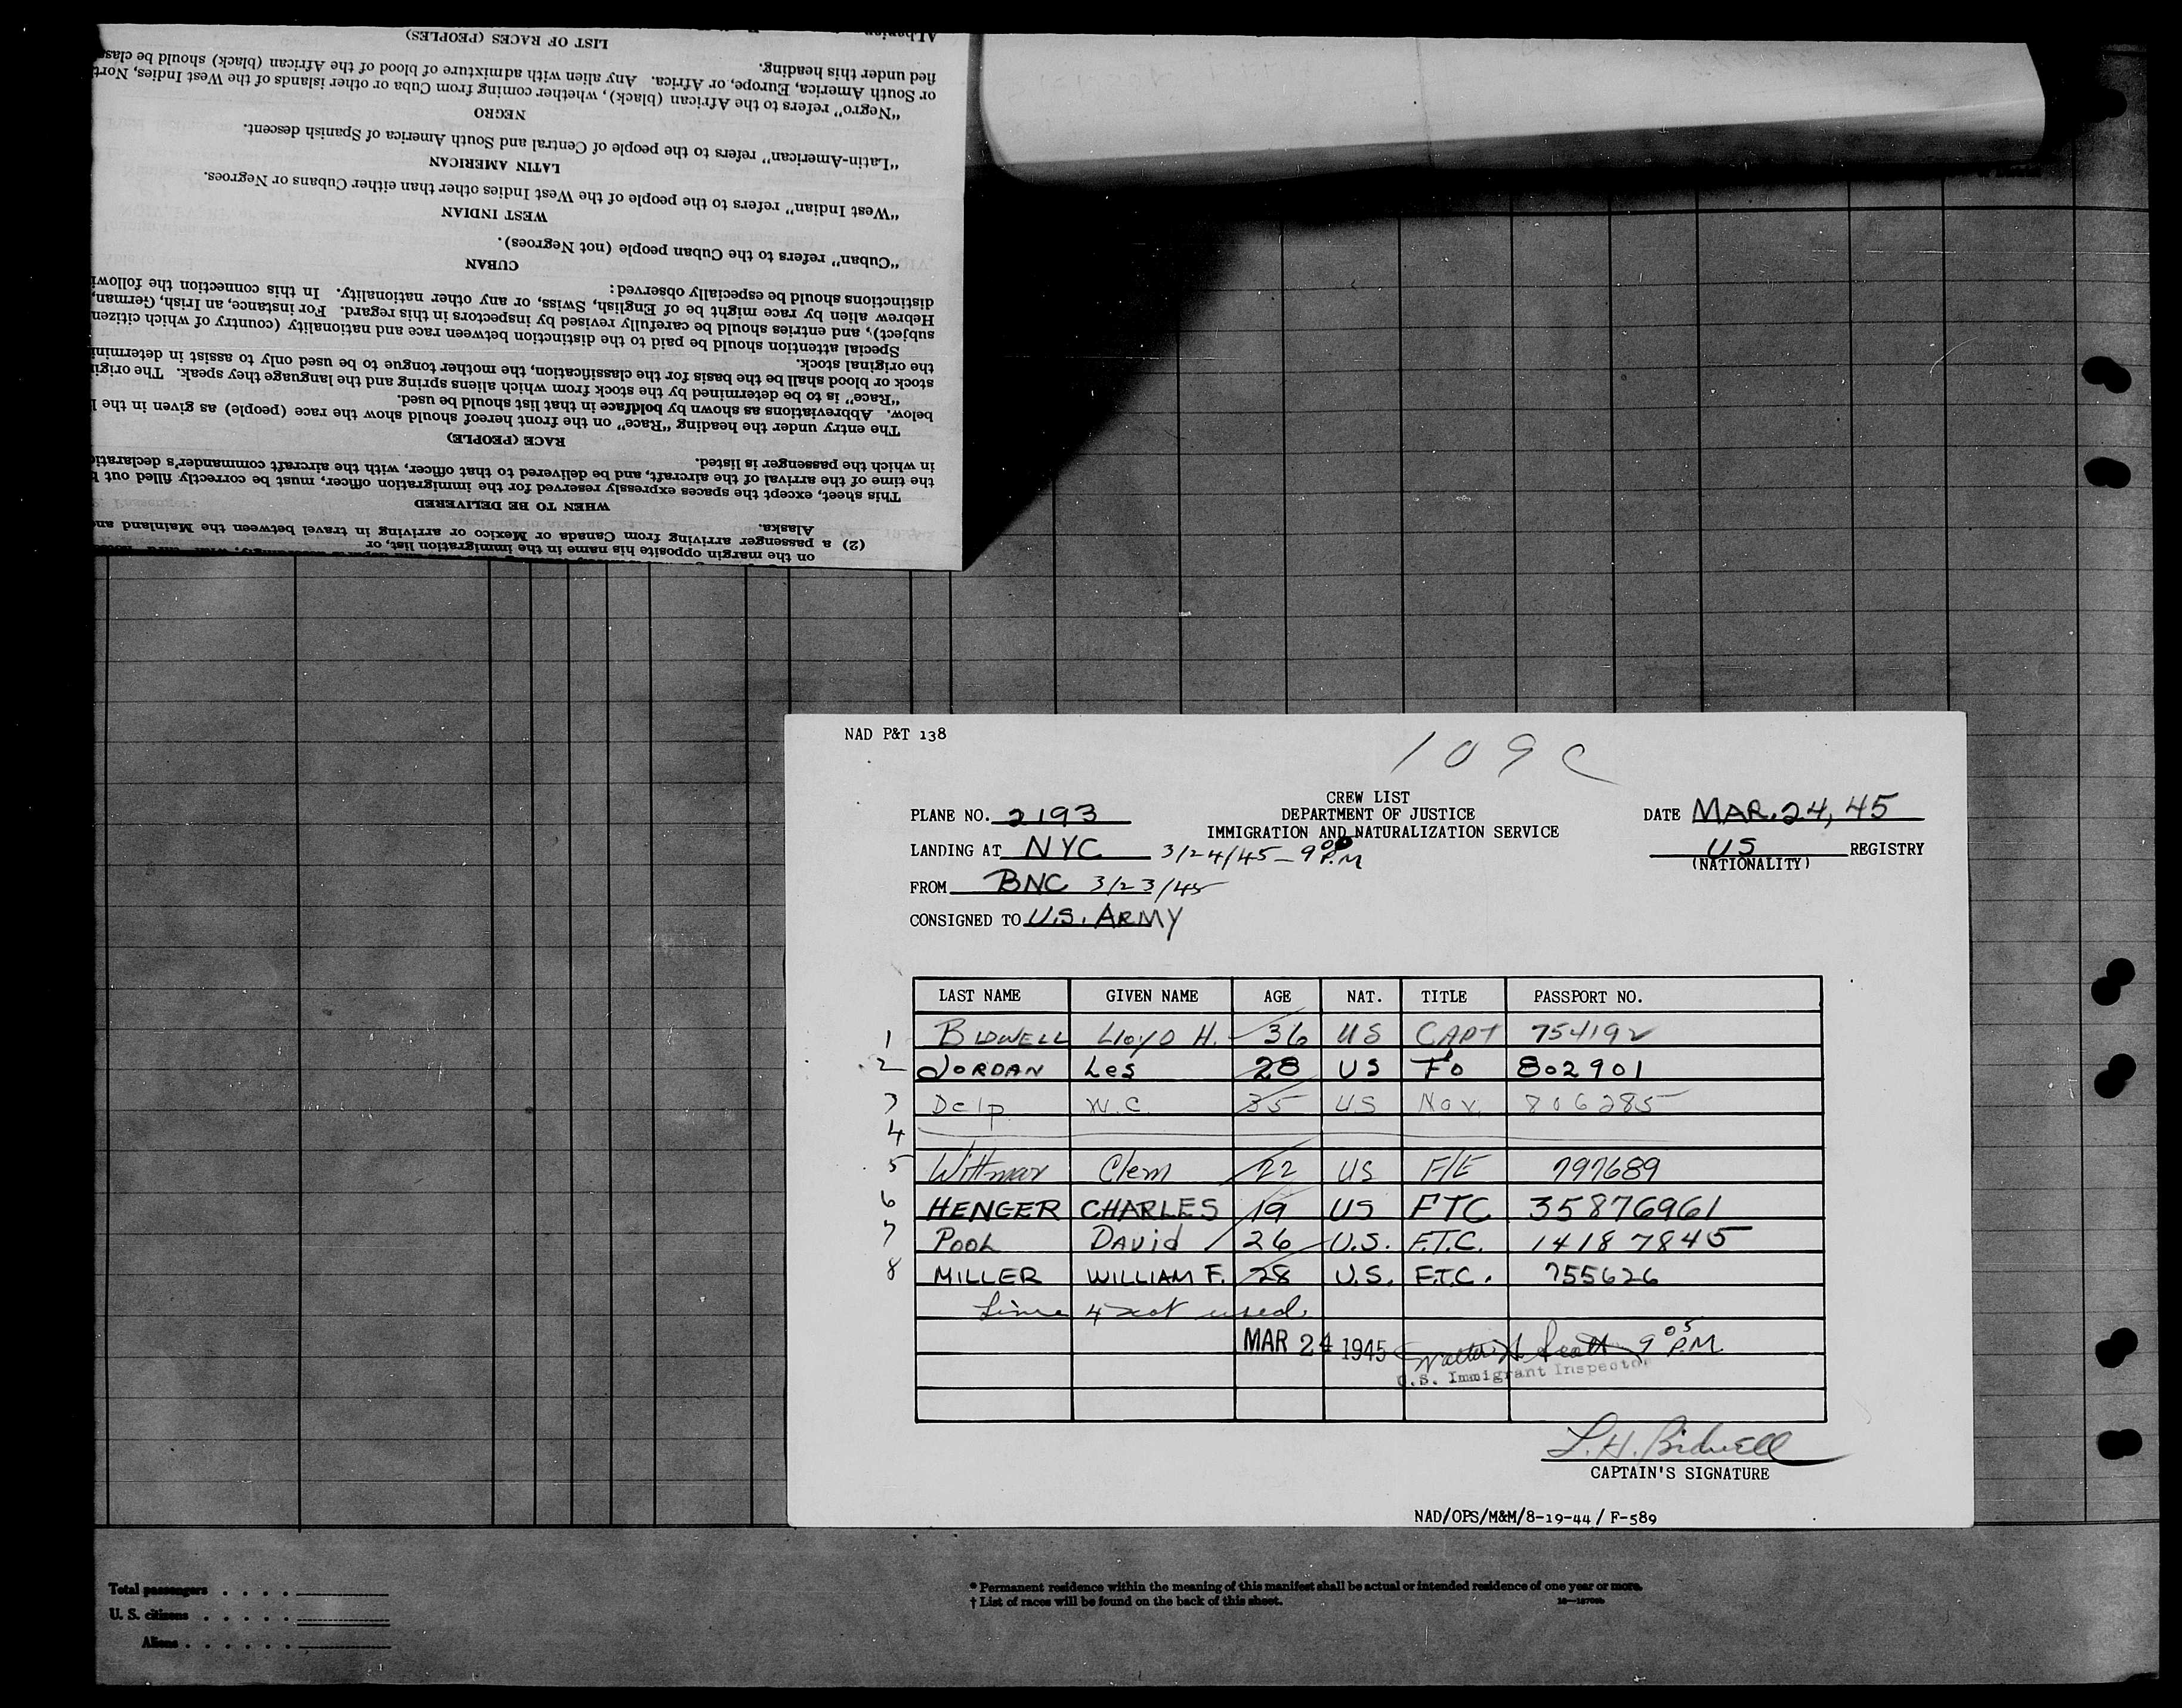 on the margin opposite his name in the immigration list, or
(2) a passenger arriving from Canada or Mexico or arriving in travel between the Mainland and
Alaska.
WHEN TO BE DELIVERED
This sheet, except the spaces expressly reserved for the immigration officer, must be correctly filled out
the time of the arrival of the aircraft, and be delivered to that officer, with the aircraft commander's declarati
in which the passenger is listed.
RACE (PEOPLE)
The entry under the heading "Race" on the front hereof should show the race (people) as given in the
below. Abbreviations as shown by boldface in that list should be used.
"Race" is to be determined by the stock from which aliens spring and the language they speak. The origi
stock or blood shall be the basis for the classification, the mother tongue to be used only to assist in determini
the original stock.
Special attention should be paid to the distinction between race and nationality (country of which citizen
subject), and entries should be carefully revised by inspectors in this regard. For instance, an Irish, German,
Hebrew alien by race might be of English, Swiss, or any other nationality. In this connection the followi
distinctions should be especially observed:
CUBAN
"Cuban" refers to the Cuban people (not Negroes).
WEST INDIAN
"West Indian" refers to the people of the West Indies other than either Cubans or Negroes.
LATIN AMERICAN
"Latin-American" refers to the people of Central and South America of Spanish descent.
NEGRO
"Negro" refers to the African (black), whether coming from Cuba or other islands of the West Indies, Nort
or South America, Europe, or Africa. Any alien with admixture of blood of the African (black) should be class
fied under this heading.
LIST OF RACES (PEOPLES)
NAD P&T 138
109 C
CREW LIST
DEPARTMENT OF JUSTICE
IMMIGRATION AND NATURALIZATION SERVICE
PLANE NO. 2193
DATE MAR. 24, 45
LANDING AT NYC 3/24/45 - 9 00 P.M
US REGISTRY
(NATIONALITY)
FROM BNC 3/23/45
CONSIGNED TO U.S. ARMY
LAST NAME GIVEN NAME AGE NAT. TITLE PASSPORT NO.
1 BIDWELL Lloyd H. 36 US CAPT 754192
2 JORDAN Les 28 US F/O 802901
3 Delp W.C. 35 US Nav. 806285
4
5 Wittmar Clem 22 US F/E 797689
6 HENGER CHARLES 19 US FTC 35876961
7 POOL David 26 U.S. F.T.C. 14187845
8 MILLER WILLIAM F. 28 U.S. F.T.C. 755626
Line 4 not used.
MAR 24 1945 Walter H Scott 9 05 P.M
U.S. Immigrant Inspector
L.H. Bidwell
CAPTAIN'S SIGNATURE
NAD/OPS/M&M/8-19-44 / F-589
Total passengers . . . .
U. S. citizens . . . . .
Aliens . . . . . .
* Permanent residence within the meaning of this manifest shall be actual or intended residence of one year or more.
† List of races will be found on the back of this sheet.